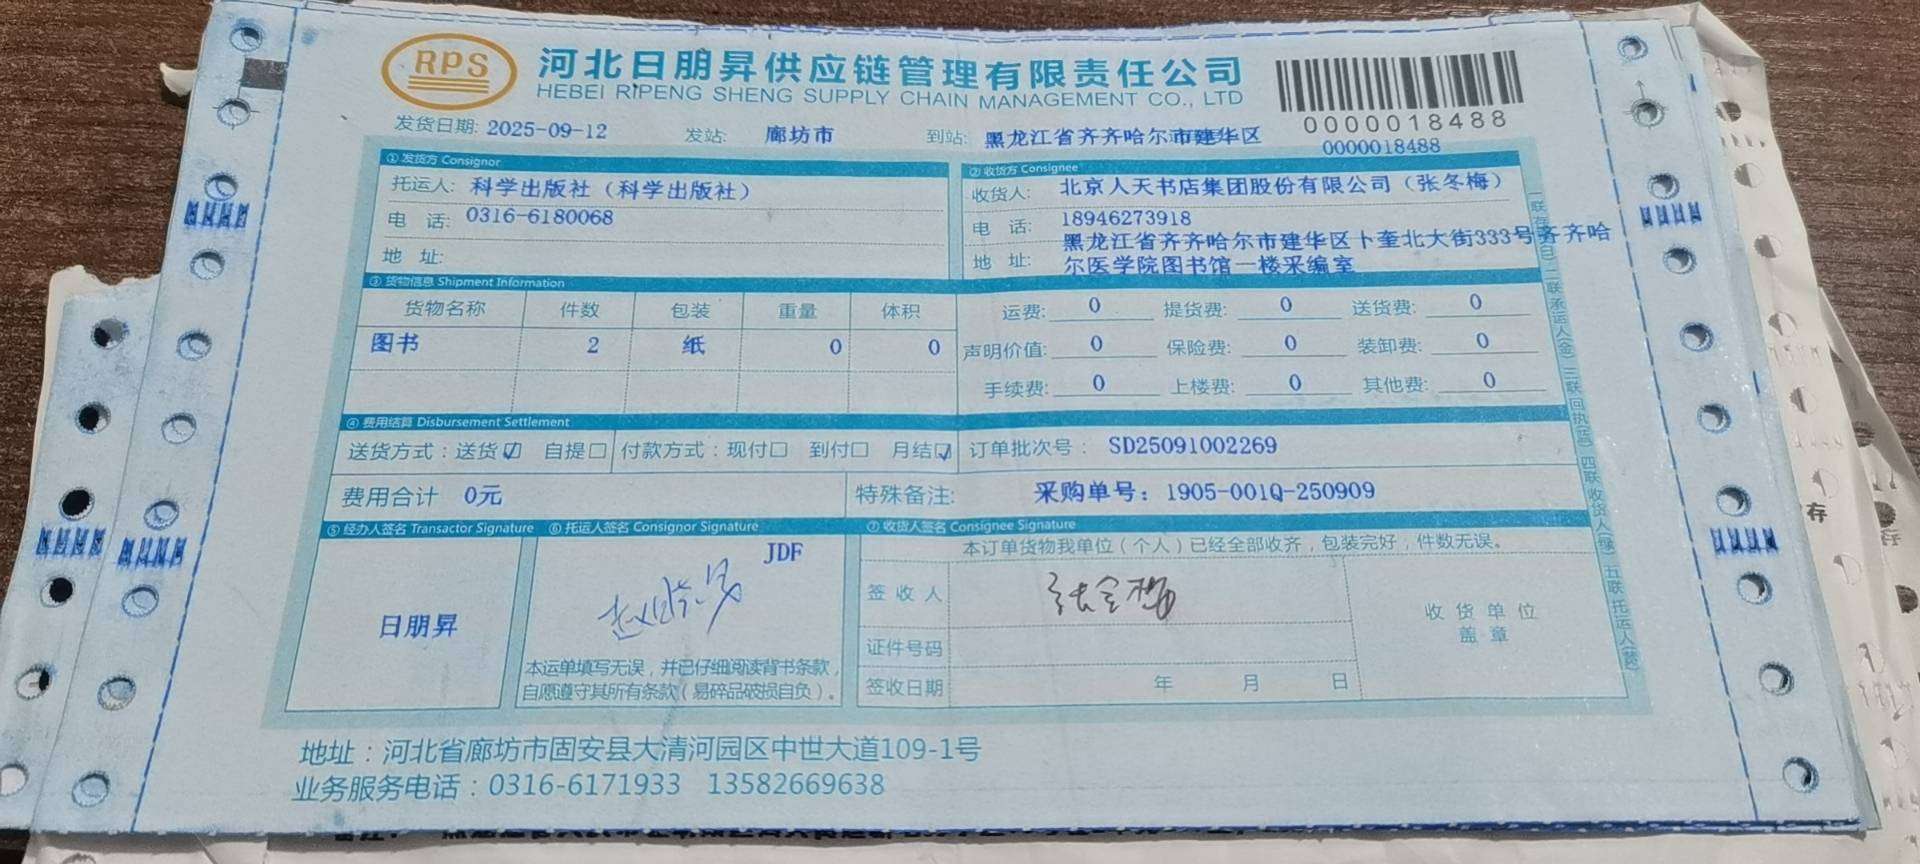 RPS
河北日朋昇供应链管理有限责任公司
HEBEI RIPENG SHENG SUPPLY CHAIN MANAGEMENT CO., LTD
0000018488
0000018488
发货日期: 2025-09-12 发站: 廊坊市 到站: 黑龙江省齐齐哈尔市建华区
① 发货方 Consignor
托运人: 科学出版社（科学出版社）
电 话: 0316-6180068
地 址:
② 收货方 Consignee
收货人: 北京人天书店集团股份有限公司（张冬梅）
电 话: 18946273918
地 址: 黑龙江省齐齐哈尔市建华区卜奎北大街333号齐齐哈
尔医学院图书馆一楼采编室
③ 货物信息 Shipment Information
货物名称 件数 包装 重量 体积
图书 2 纸 0 0
运费: 0 提货费: 0 送货费: 0
声明价值: 0 保险费: 0 装卸费: 0
手续费: 0 上楼费: 0 其他费: 0
④ 费用结算 Disbursement Settlement
送货方式：送货☑ 自提☐ 付款方式：现付☐ 到付☐ 月结☑ 订单批次号： SD25091002269
费用合计 0元 特殊备注: 采购单号：1905-001Q-250909
⑤ 经办人签名 Transactor Signature
日朋昇
⑥ 托运人签名 Consignor Signature
JDF
本运单填写无误，并已仔细阅读背书条款，
自愿遵守其所有条款（易碎品破损自负）。
⑦ 收货人签名 Consignee Signature
本订单货物我单位（个人）已经全部收齐，包装完好，件数无误。
签 收 人 张冬梅
证件号码
签收日期 年 月 日
收 货 单 位
盖 章
地址：河北省廊坊市固安县大清河园区中世大道109-1号
业务服务电话：0316-6171933 13582669638
存